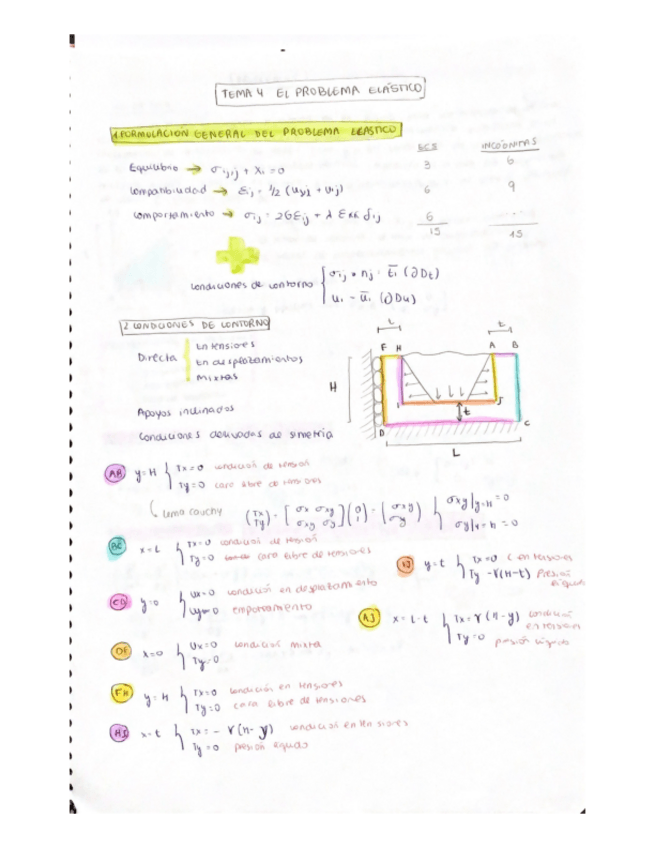 TEMA 4 EL PROBLEMA ELÁSTICO
1. FORMULACIÓN GENERAL DEL PROBLEMA ELÁSTICO
ECS INCÓGNITAS
Equilibrio → σij,j + Xi = 0 3 6
Compatibilidad → Eij = 1/2 (ui,j + uj,i) 6 9
Comportamiento → σij = 2GEij + λ Ekk δij 6 ...
15 15
+
Condiciones de contorno { σij * nj = t̄i (∂Dt)
ui = ūi (∂Du)
2 CONDICIONES DE CONTORNO
Directa { En tensiones
En desplazamientos
Mixtas
Apoyos inclinados
Condiciones derivadas de simetría
t t
F H A B
H
I J
t
D C
L
AB y=H { Tx=0 condición de tensión
Ty=0 cara libre de tensiones
Lema Cauchy (Tx Ty) = [σx σxy σxy σy] (0 1) = (σxy σy) { σxy|y=H = 0
σy|y=H = 0
BC x=L { Tx=0 condición de tensión
Ty=0 cara libre de tensiones
IJ y=t { Tx=0 C en tensiones
Ty -γ(H-t) Presión líquido
CD y=0 { Ux=0 condición en desplazamiento
Uy=0 empotramiento
AJ x=L-t { Tx=γ(H-y) condición en tensiones
Ty=0 presión líquido
DF x=0 { Ux=0 condición mixta
Ty=0
FH y=H { Tx=0 condición en tensiones
Ty=0 cara libre de tensiones
HI x=t { Tx=-γ(H-y) condición en tensiones
Ty=0 presión líquido